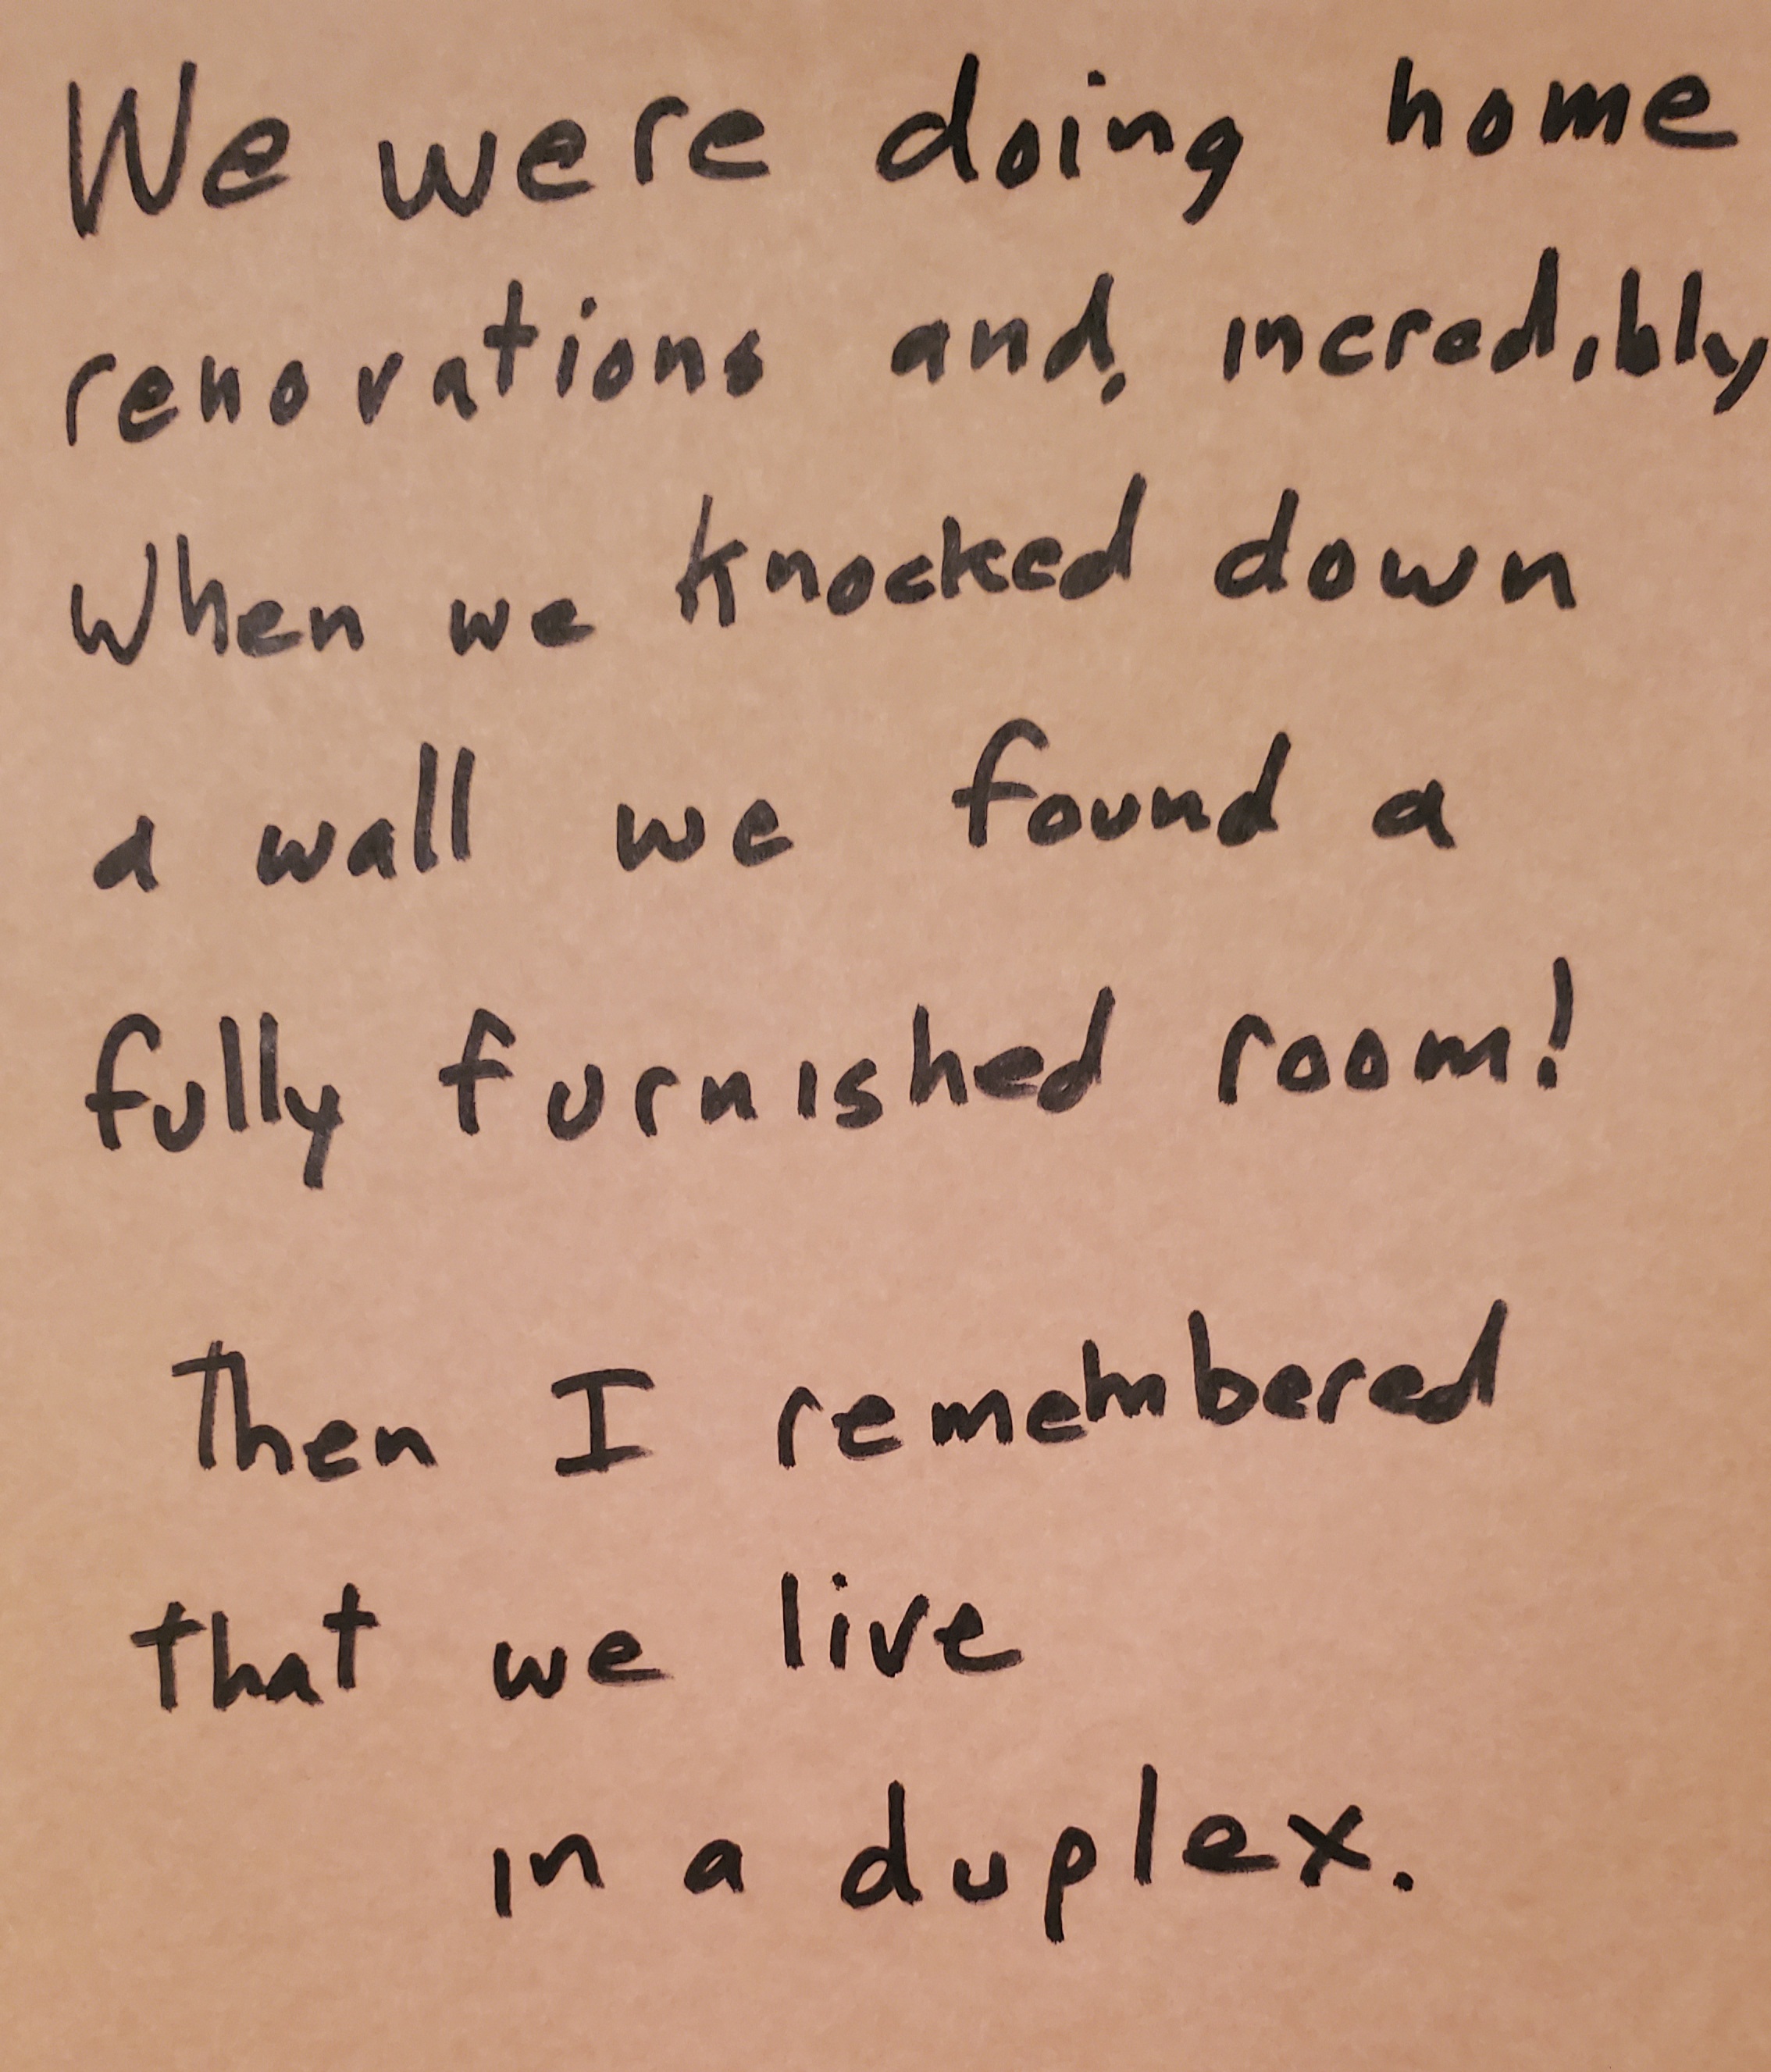 We were doing home
renovations and, incredibly
When we knocked down
a wall we found a
fully furnished room!
Then I remembered
that we live
in a duplex.